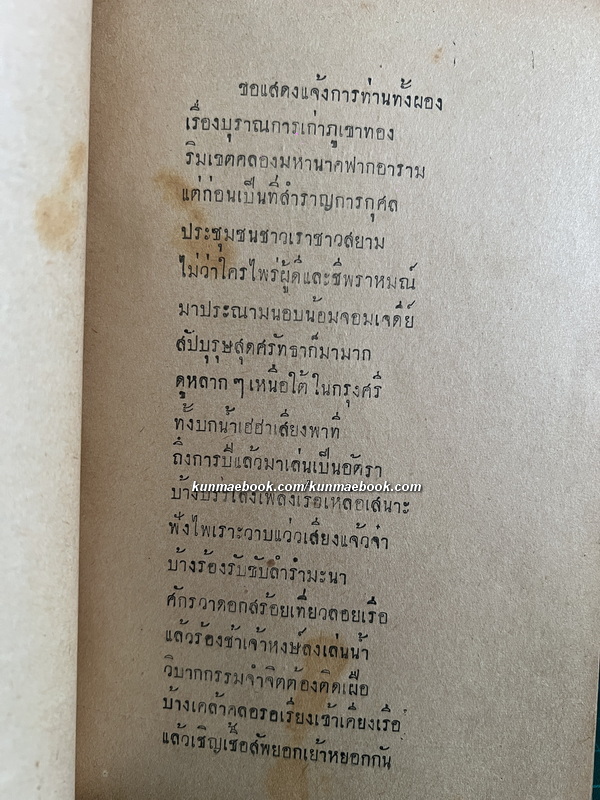 ขอแสดงแจ้งการท่านทั้งผอง
เรื่องบุราณการเก่าภูเขาทอง
ริมเขตคลองมหานาคฟากอาราม
แต่ก่อนเป็นที่สำราญการกุศล
ประชุมชนชาวเราชาวสยาม
ไม่ว่าใครไพร่ผู้ดีและชีพราหมณ์
มาประณามนอบน้อมจอมเจดีย์
สัปบุรุษสุดศรัทธาก็มามาก
ดูหลาก ๆ เหนือใต้ในกรุงศรี
ทั้งบกน้ำเฮฮาเสียงพาที
ถึงการปีแล้วมาเล่นเป็นอัตรา
kunmaebook.com/kunmaebook.com
บ้างบรรเลงเพลงเรือเหลือเสนาะ
ฟังไพเราะวาบแว่วเสียงแจ้วจ๋า
บ้างร้องรับขับลำรำมะนา
ศักรวาดอกสร้อยเที่ยวลอยเรือ
แล้วร้องช้าเจ้าหงษ์ลงเล่นน้ำ
วิบากกรรมจำจิตต้องติดเฝือ
บ้างเคล้าคลอรอเรียงเข้าเคียงเรือ
แล้วเชิญเชื้อสัพยอกเย้าหยอกกัน